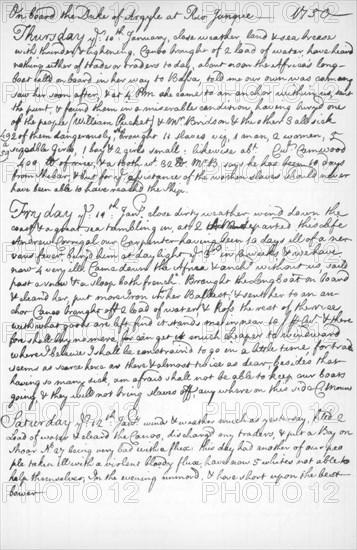 On board the Duke of Argyle at Rio Junque — 1750 —
Thursday ye. 10th January, close weather land & sea breeze
with thunder & lightening. Canbo brought of 2 load of water, have heard
nothing either of trade or traders to day, about noon the Affrica's long-
boat called on board in her way to Bassa, told me our own was coming
saw her soon after, & at 4 PM she came to an anchor within us, sent
the punt, & found them in a miserable condition, having buryd one
of the people (William Pucket) & Mr. Bridson & the other 3 all sick
of them dangerously, brought 11 slaves viz, 1 man, 2 women,
1 boy & 2 girls small: likewise abt. Camwood
400 lb of mine, & a tooth wt. 32 lb. Mr. B. says he has been 10 days
from Shebar, & but for ye. assistance of the woman slaves should never
have been able to have reached the Ship.
Fryday ye. 11th. Janry. close dirty weather, wind down the
coast, & a great sea tumbling in, at 2 departed this life
Andrew Corrigal our Carpenter having been 10 days ill of a ner-
vous fever, buryd him at day light ye.
now 4 very ill. Came down the Africa & anchd. without us, said
past a snow & a sloop both french. Brought the Longboat on board
& cleand her, put more Iron in her Ballast, & sent her to an an-
chor. Canoo brought off 2 load of water, & Ross the rest of the rice
with what goods are left: find it stands me in near 10 & there-
fore shall buy no more, for can get it much cheaper to windward
where I believe I shall be constraind to go in a little time for trade
seems as scarce here as there & almost twice as dear: besides that
having so many sick, am afraid shall not be able to keep our boats
going, & they will not bring slaves off any where on this side C: Mount
Saturday ye. 12th. Janry. wind & weather much as yesterday. 2
load of water & cleand the Canoo, discharg'd my traders, & put a Boy on
shoar No. 27 being very bad with a flux. this day had another of our peo-
ple taken ill with a violent bloody flux, have now 5 whites not able to
help themselves. In the evening unmoord, & hove short upon the best
bower